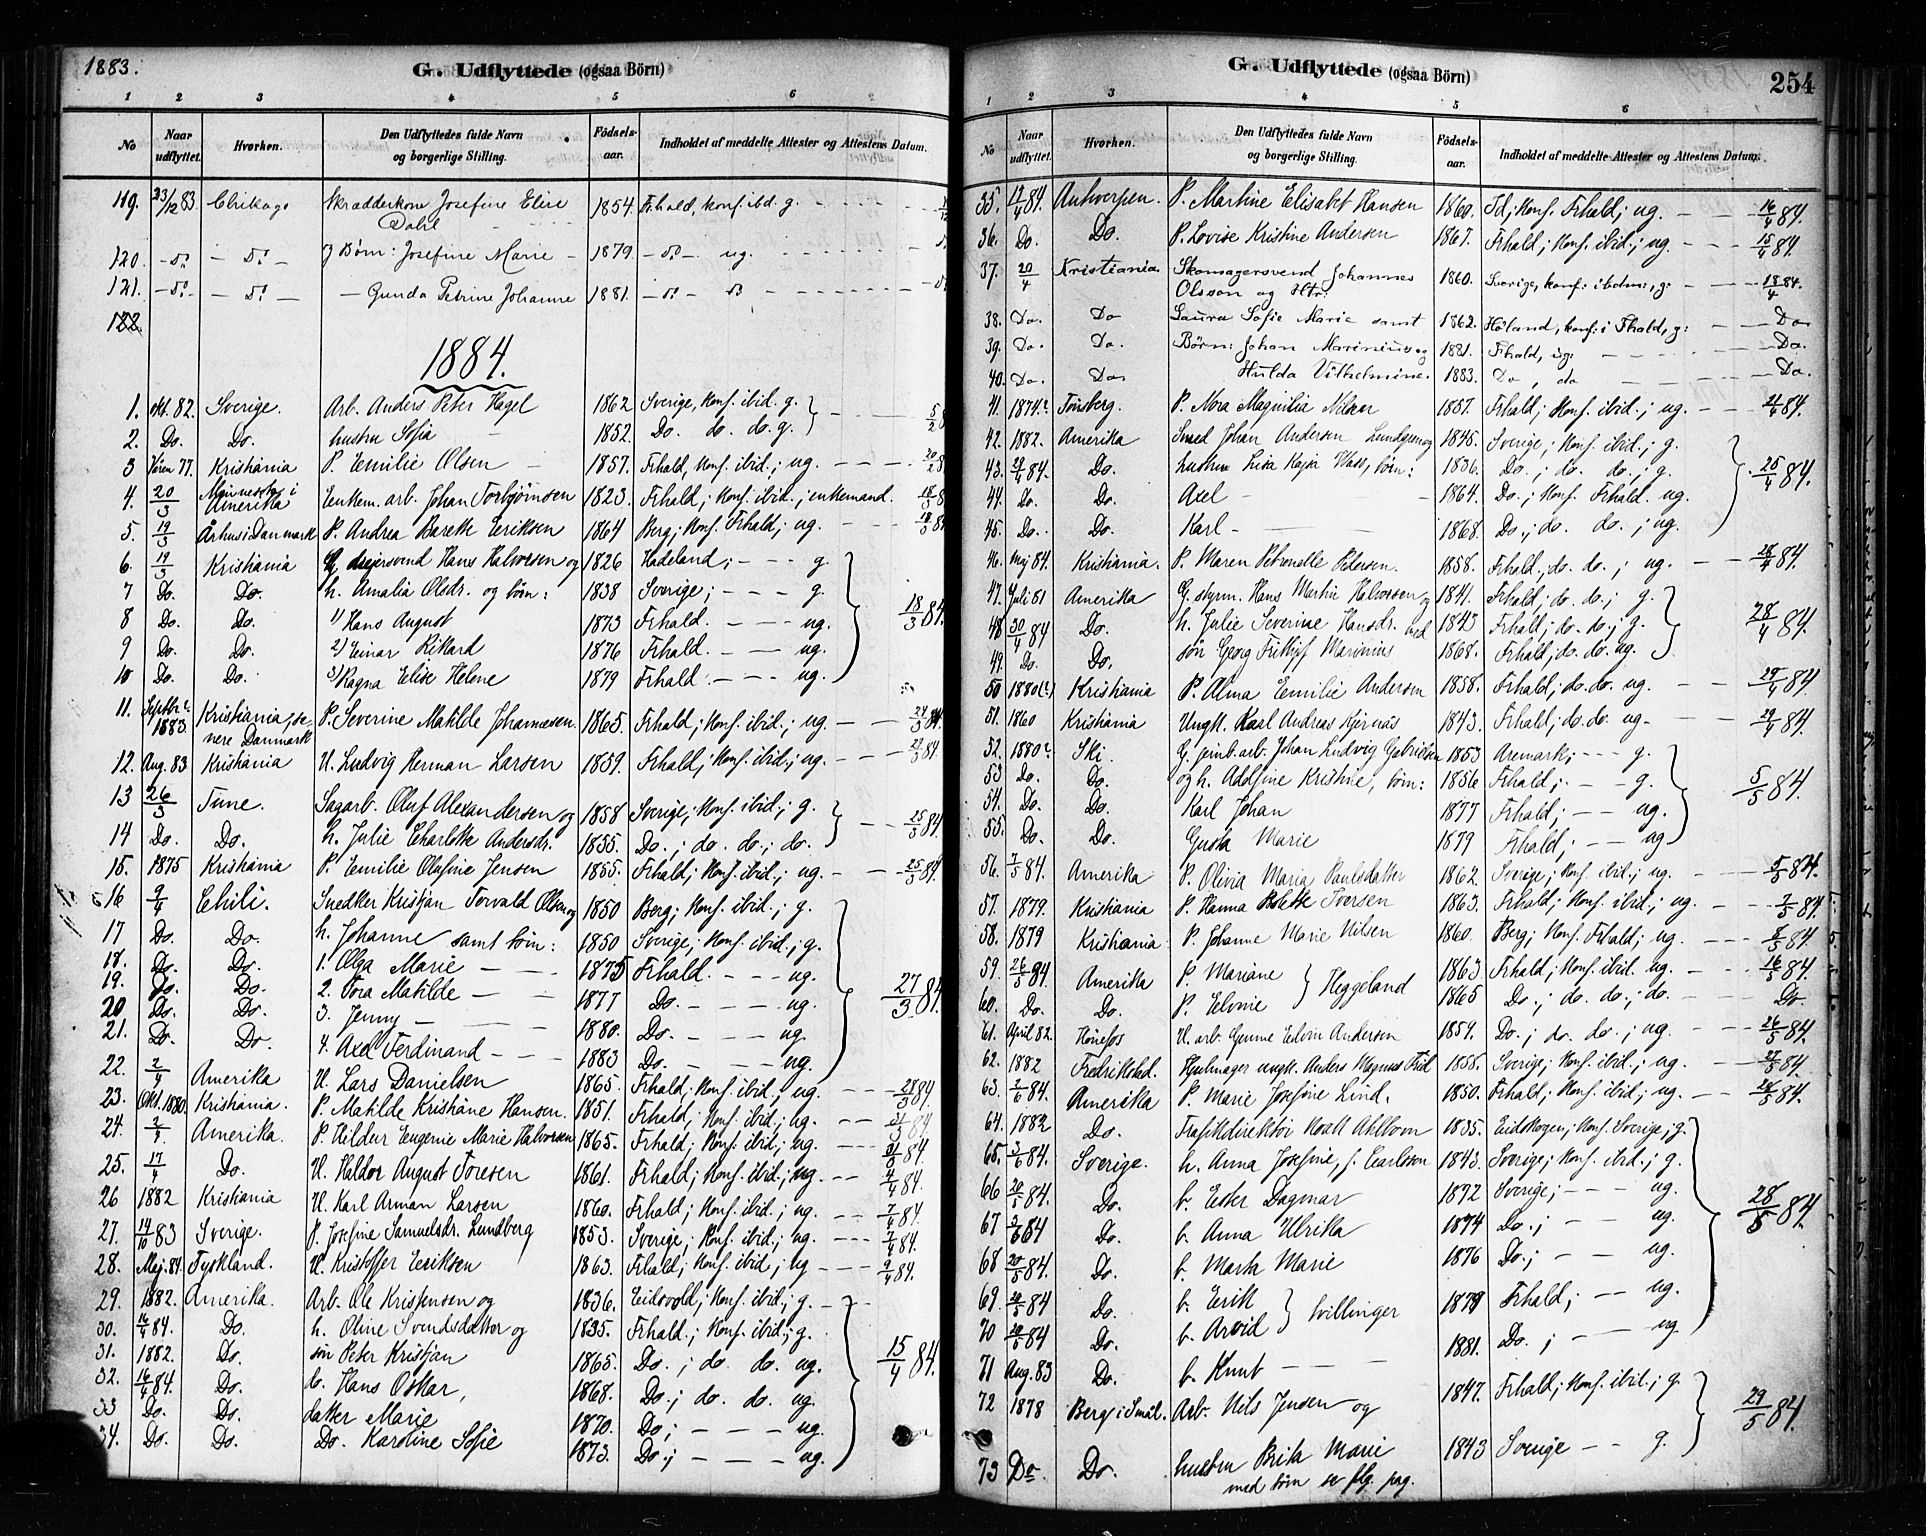 1883.
G. Udflyttede (ogsaa Börn)
1 2 3 4 5 6
No Naar udflyttet. Hvorhen. Den Udflyttedes fulde Navn og borgerlige Stilling. Födsels-aar. Indholdet af meddelte Attester og Attestens Datum.
119. 23/12 83. Chikago Skrædderkone Josefine Elise Dahl 1854. Fr.hald, konf. ibd. g.
120. do do og Børn: Josefine Marie 1879 do ug.
121. do do Gunda Petrine Johanne 1881. do do
122.
1884.
1. okt. 82. Sverige. Arb. Anders Peter Hagel 1862 Sverige, konf. ibid. g.
2. Do. Do. hustru Sofia 1852. Do. do. do. g.
3 Våren 77. Kristiania P. Emilie Olsen 1857. Frhald, konf. ibid.; ug.
4. 20/3 Minnesota i Amerika Enkem. arb. Johan Torbjørnsen 1823. Frhald; konf. ibid.; enkemand. 18/3
5. 19/3 Århus i Danmark P. Andrea Bareth Eriksen 1864 Berg; konf. Frhald; ug. 18/3
6. 19/3 Kristiania G. dreiersvend Hans Halvorsen og 1826 Hadeland; g.
7 Do. Do. h. Amalia Olsdr. og børn: 1838 Sverige; g.
8 Do. Do. 1) Hans August 1873 Frhald. ug. 18/3 84.
9 Do. Do. 2) Einar Rikard 1876 Frhald. ug.
10 Do. Do. 3) Ragna Elise Helene 1879 Frhald. ug.
11. Septbr. 1883. Kristiania, senere Danmark P. Severine Matilde Johannesen 1865. Frhald; konf. ibid.; ug. 24/3 84.
12. Aug. 83 Kristiania U. Ludvig Herman Larsen 1859. Frhald; konf. ibid.; ug. 84
13 26/3 Tune. Sagarb. Oluf Alexandersen og 1858 Sverige; konf. ibid.; g.
14 Do. Do. h. Julie Charlotte Andersdr. 1855. Do.; do. do.; do. 25/3 84.
15. 1875 Kristiania P. Emilie Olufine Jensen 1855. Frhald; konf. ibid.; ug. 25/3 84.
16 9/4 Chili. Snedker Kristian Torvald Olsen og 1850 Berg; konf. ibid.; g.
17 Do. Do. h. Johanne samt børn: 1850 Sverige; konf. ibid.; g.
18. Do. Do. 1. Olga Marie 1875 Frhald. ug.
19. Do. Do. 2. Tora Matilde 1877 Do. ug. 27/3 84.
20 Do. Do. 3. Jenny 1880. Do. ug.
21. Do. Do. 4. Axel Ferdinand 1883 Do. ug.
22. 2/4 Amerika U. Lars Danielsen 1865. Frhald; konf. ibid.; ug. 28/3 84.
23. Okt. 1880. Kristiania. P. Matilde Kristiane Hansen. 1851. Frhald; konf. ibid.; ug. 31/3 84
24. 2/4 Amerika. P. Hildur Eugenie Marie Halvorsen 1865. Frhald; konf. ibid.; ug. 31/3 84.
25. 17/4 Do. U. Haldor August Toresen 1861. Frhald; konf. ibid.; ug. 2/4 84.
26 1882 Kristiania U. Karl Arman Larsen 1860. Frhald; konf. ibid.; ug. 7/4 84.
27. 14/10 83 Sverige. P. Josefine Samuelsdr. Lundberg 1853. Sverige; konf. ibid.; ug. 7/4 84.
28. Maj. 84 Tyskland. U. Kristoffer Eriksen 1863. Frhald; konf. ibid.; ug 9/4 84.
29. 1882. Amerika. Arb. Ole Kristensen og 1836. Eidsvold; konf. ibid.; g.
30. 16/4 84. Do. h. Oline Svendsdatter og 1835. Frhald.; konf. ibid.; g.
31. 1882. Do. søn Peter Kristjan 1865. Do.; do. do. ug. 15/4 84.
32. 16/4 84. Do. do. Hans Oskar, 1868. Do.; do. do. ug.
33 Do. Do. datter Marie 1870. Do.; ug.
34. Do. Do. Do. Karoline Sofie 1873. Do.; ug.
G. Udflyttede (ogsaa Börn) 254
1 2 3 4 5 6
No Naar udflyttet. Hvorhen. Den Udflyttedes fulde Navn og borgerlige Stilling. Födsels-aar. Indholdet af meddelte Attester og Attestens Datum.
35. 17/4 84. Antwerpen. P. Martine Elisabet Hansen 1860. Id; konf. Frhald; ug. 16/4 84.
36. Do. Do. P. Lovise Kristine Andersen 1867. Frhald; konf. ibid.; ug. 15/4 84.
37. 20/4 Kristiania Skomagersvend Johannes Olsson og Htr: 1860. Sverige, konf: ibdm:, g: 18/4 84.
38. Do. Do Laura Sofie Marie samt 1862. Høland, konf: i Fhald, g: Do
39. Do. Do. Børn: Johan Marinius og 1881. Frhald, ug: Do.
40. Do. Do. Hulda Vilhelmine. 1883. Do, do Do.
41. 1874. Tønsberg. P. Nora Magnilia Nilsen 1857. Frhald; konf. ibid.; ug. 21/4 84.
42. 1882. Amerika Smed Johan Andersen Lundgren og 1845. Sverige; konf. ibid.; g.
43. 84. Do. hustru Lisa Kajsa, børn: 1836. Do.; do. do.; g. 25/4 84.
44. Do. Do. Axel 1864. Do.; konf. Frhald. ug.
45. Do. Do. Karl 1868. Do.; do. do.; ug.
46. Maj 84. Kristiania. P. Maren Petronelle Pedersen. 1858. Frhald.; do. do.; ug. 28/4 84.
47. Juli 81 Amerika G. styrm. Hans Martin Halvorsen og 1841. Frhald; do. do.; g.
48 30/4 84 Do. h. Julie Severine Hansdr. med 1843 Frhald; do. do.; g. 28/4 84.
49. Do. Do. søn Georg Fritjof Marinius 1868. Frhald; do. do. ug.
50 1880 Kristiania P. Alma Emilie Andersen 1858. Frhald; do. do. ug. 29/4 84
51. 1860 Kristiania Ungk. Karl Andreas Kjirnäs 1843. Frhald; do. do. ug. 29/4 84.
52. 1880 Ski. G. jernb. arb. Johan Ludvig Gabrielsen 1853 Aremark; g.
53 Do. Do. og h. Adolfine Kristine, børn: 1856 Frhald; g. 5/5 84.
54. Do. Do. Karl Johan 1877 Frhald; ug.
55. Do. Do. Gusta Marie 1879 Frhald; ug
56. 7/5 84. Amerika P. Olivia Maria Paulsdatter 1862. Sverige; konf. ibid.; ug. 5/5 84.
57. 1879. Kristiania P. Hanna Bolette Iversen 1863. Frhald; konf. ibid.; ug. 7/5 84.
58. 1879 Kristiania P. Johanne Marie Nilsen 1860. Berg; konf. Frhald; ug. 8/5 84.
59. 26/5 84. Amerika P. Mariane } Heggeland 1863. Frhald; konf. ibid. ug. 16/5 84.
60. Do. Do. P. Elvine 1865 Do.; do. do.; do. Do.
61. April 82. Hønefos U. arb. Gunne Edvin Andersen 1859. Do.; do. do.; ug. 26/5 84.
62. 1882 Fredrikstad. Hjulmager ungk. Anders Magnus Frid 1855. Sverige; konf. ibid.; ug. 27/5 84.
63. 2/6 84. Amerika P. Marie Josefine Lind. 1850. Frhald; konf. ibid.; ug. 28/5 84.
64. 1882 Do. Trafikdirektør Noak Ahlbom 1835. Eidskogen; konf. Sverige; g.
65. 3/6 84. Sverige. h. Anna Josefine, f. Carlsson 1843. Sverige; konf. ibid.; g.
66 20/5 84. Do. b. Ester Dagmar 1872 Sverige; ug. 28/5 84.
67 3/6 84 Do. b. Anna Ulrika 1874 Do.; ug.
68 20/5 84. Do. b. Marta Marie 1876 Do.; ug.
69. 20/5 84 Do. b. Erik } tvillinger 1879 Frhald; ug.
70 20/5 84 Do. b. Arvid
71 Aug. 83 Do. b. Knut 1881. Do.; ug
72 1878 Berg i Smål. Arb. Nils Jensen og 1847. Frhald; konf. ibid.; g. 29/5 84.
73 Do. Do. hustru Brita Marie 1843 Sverige g.
med børn se flg. pag.